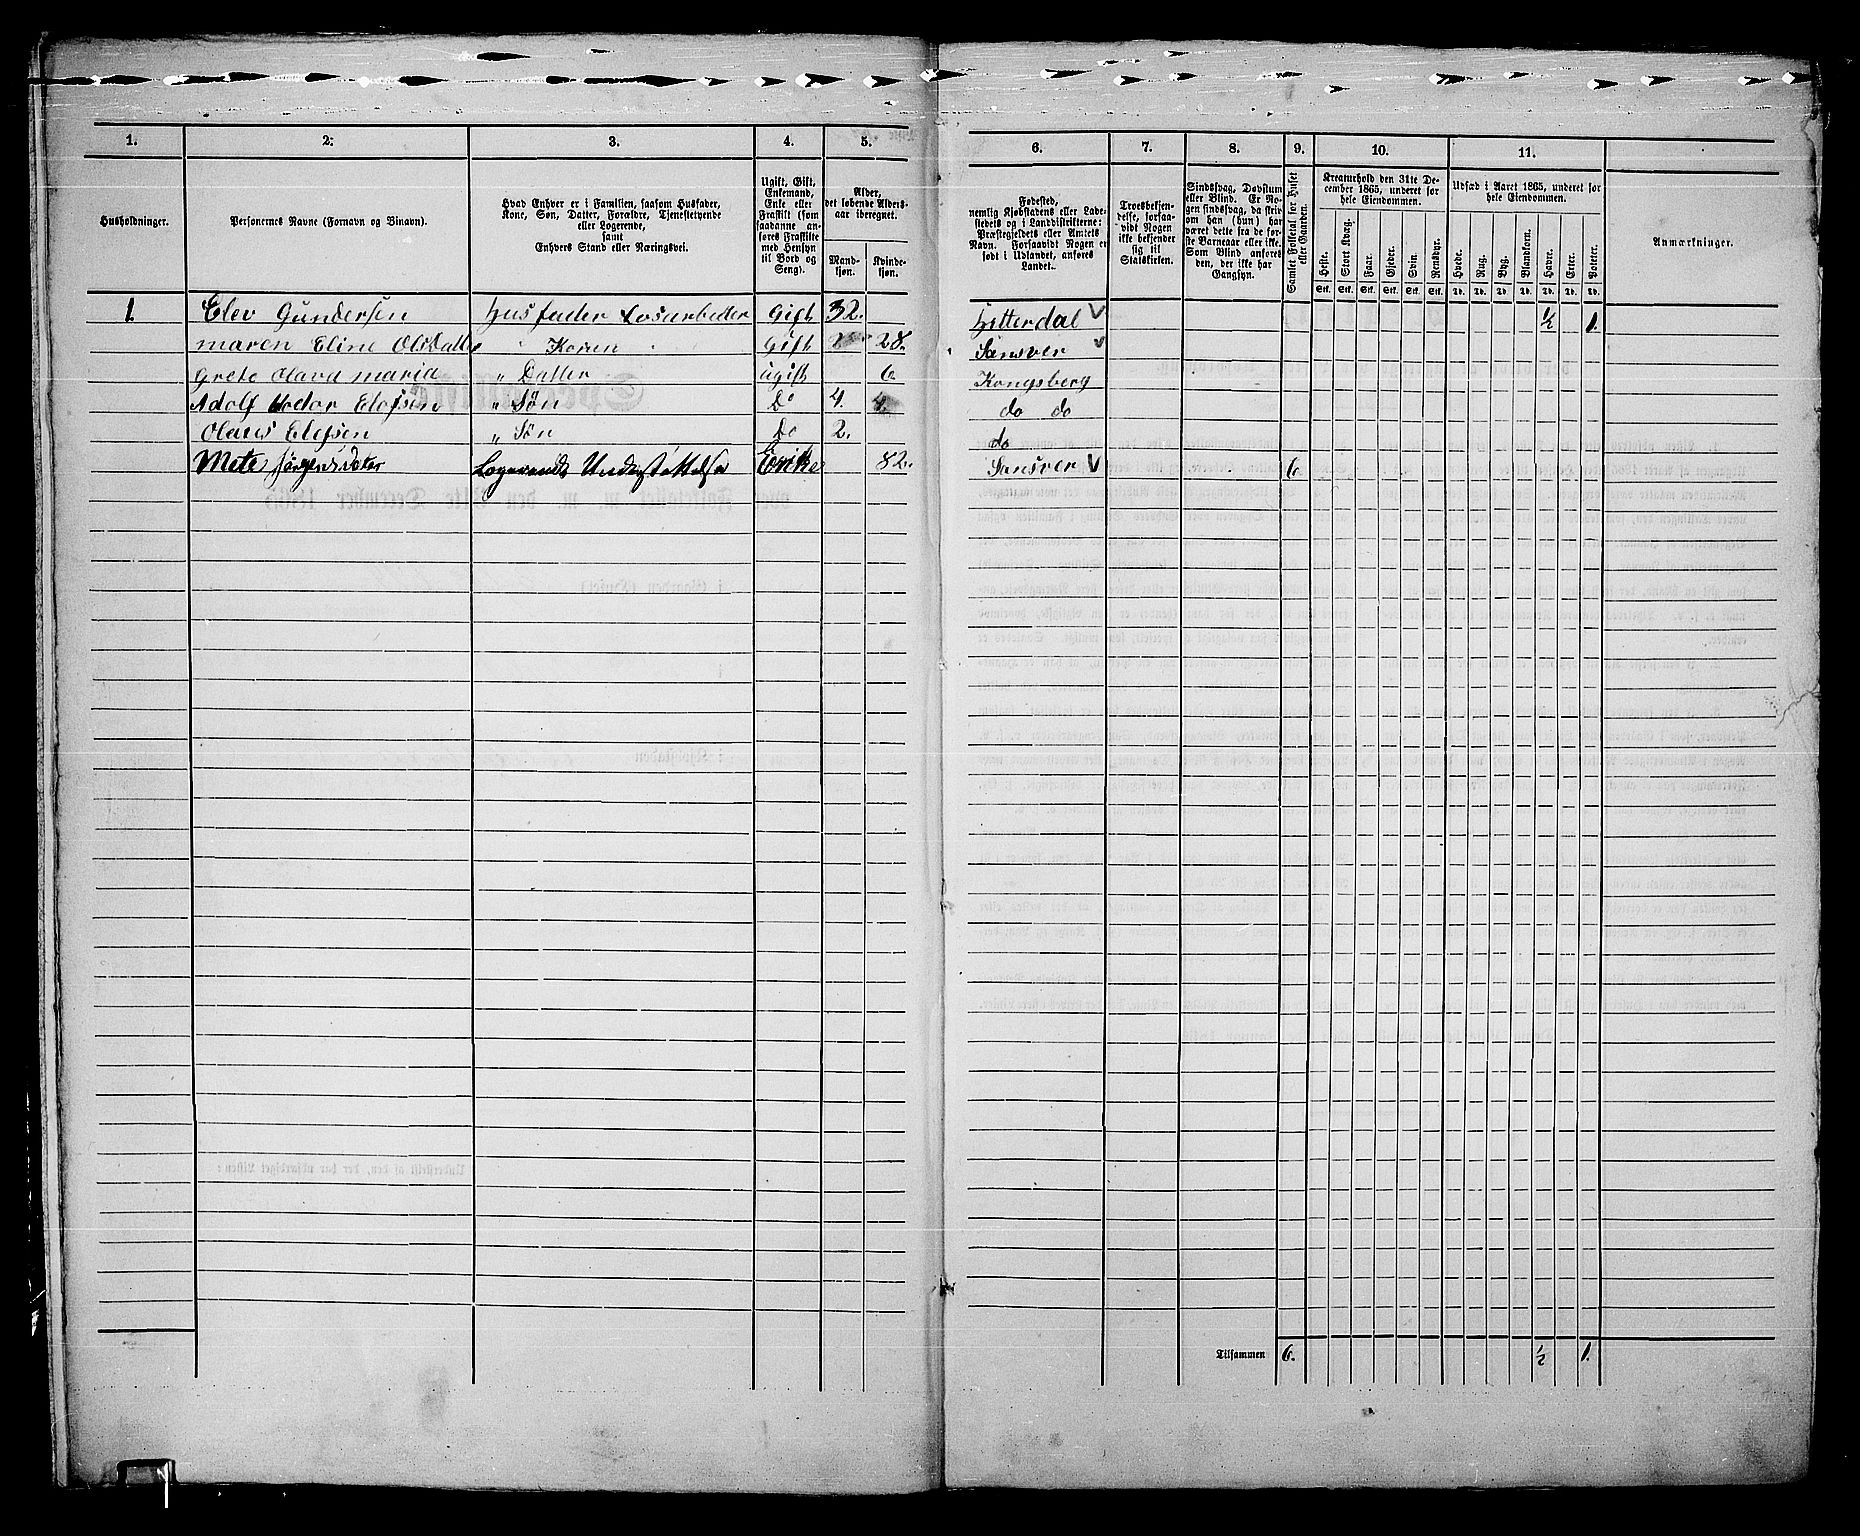 1. 2. 3. 4. 5. 6. 7. 8. 9. 10. 11.
Husholdninger.
Personernes Navne (Fornavn og Binavn).
Hvad Enhver er i Familien, saasom Husfader,
Kone, Søn, Datter, Forældre, Tjenestetyende
eller Logerende,
samt
Enhvers Stand eller Næringsvei.
Ugift, Gift,
Enkemand,
Enke eller
Fraskilt (som
saadanne an-
føres Fraskilte
med Hensyn
til Bord og
Seng).
Alder,
det løbende Alders-
aar iberegnet.
Mand-
kjøn.
Kvinde-
kjøn.
Fødested,
nemlig Kjøbstadens eller Lade-
stedets og i Landdistrikterne:
Præstegjeldets eller Amtets
Navn. Forsaavidt Nogen er
født i Udlandet, anføres
Landet.
Troesbekjen-
delse, forsaa-
vidt Nogen
ikke bekjender
sig til
Statskirken.
Sindssvag, Døvstum
eller Blind. Er No-
gen sindssvag, da skri-
ves om han (hun) har
været dette fra de før-
ste Barneaar eller ikke.
Som Blind anføres
den, der ikke har
Gangsyn.
Samlet Folketal for Huset
eller Gaarden.
Kreaturhold den 31te De-
cember 1865, underet for
hele Eiendommen.
Heste. Stort Kvæg. Faar. Gjeder. Svin. Rensdyr.
Stk. Stk. Stk. Stk. Stk. Stk.
Udsæd i Aaret 1865, underet for
hele Eiendommen.
Hvede. Rug. Byg. Blandkorn. Havre. Erter. Poteter.
Td. Td. Td. Td. Td. Td. Td.
Anmærkninger.
1. Elev Gundersen Husfader Losarbeder Gift 32. Hitterdal V ½ 1.
maren Eline Olsdatte " Konen Gift 28. Sansver V
Grete Olava maria " Datter ugift 6 Kongsberg
Adolf Elefsen " Søn Do 4. do do
Olaus Elefsen " Søn Do 2. do
Mete Jörgensdater Logerende Understøttelse Enke 82. Sansver V 6
Tilsammen 6. ½ 1.